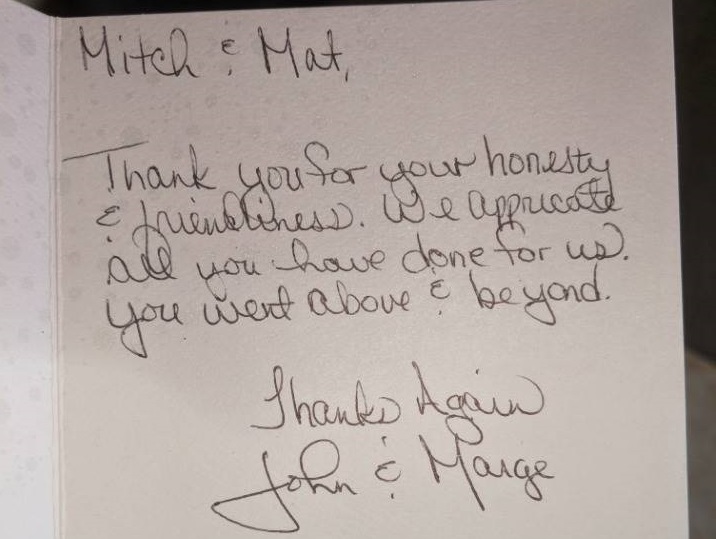 Mitch & Mat,
Thank you for your honesty
& friendliness. We appricate
all you have done for us.
You went above & beyond.
Thanks Again
John & Marge